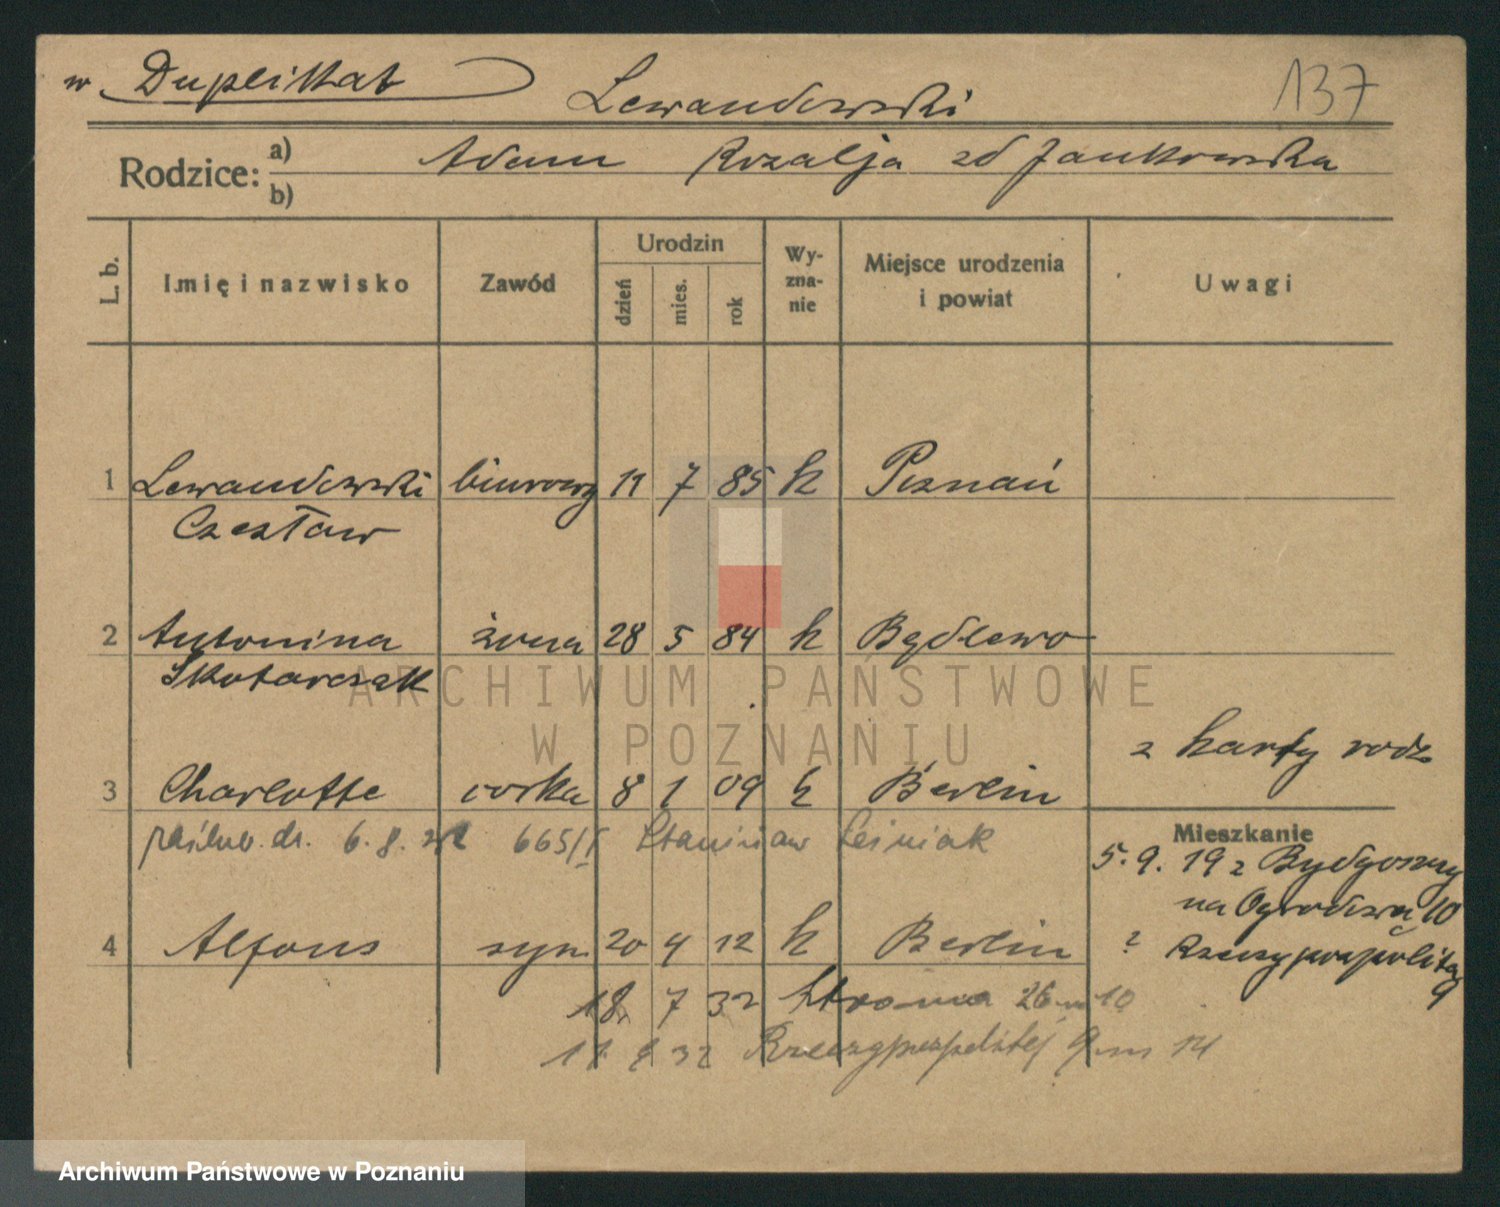 w Duplikat
Lewandowski
137
Rodzice: a) Adam Rozalja zd Jankowska
b)
L. b. Imię i nazwisko Zawód Urodzin Wy-zna-nie Miejsce urodzenia i powiat Uwagi
dzień mies. rok
1 Lewandowski biurowy 11 7 85 k Poznań
Czesław
2 Antonina żona 28 5 84 k Będlewo
Skotarczak
ARCHIWUM PAŃSTWOWE
W POZNANIU
z karty rodz.
3 Charlotte córka 8 1 09 k Berlin
poślub. dn. 6.8. 665/I Stanisław Leśniak
Mieszkanie
5.9.19 z Bydgoszczy
na Ogrodowa 10
4 Alfons syn 20 4 12 k Berlin
? Rzeczypospolitej
9
18 7 32 Stroma 26 m 10
11 32 Rzeczypospolitej 9 m 14
Archiwum Państwowe w Poznaniu